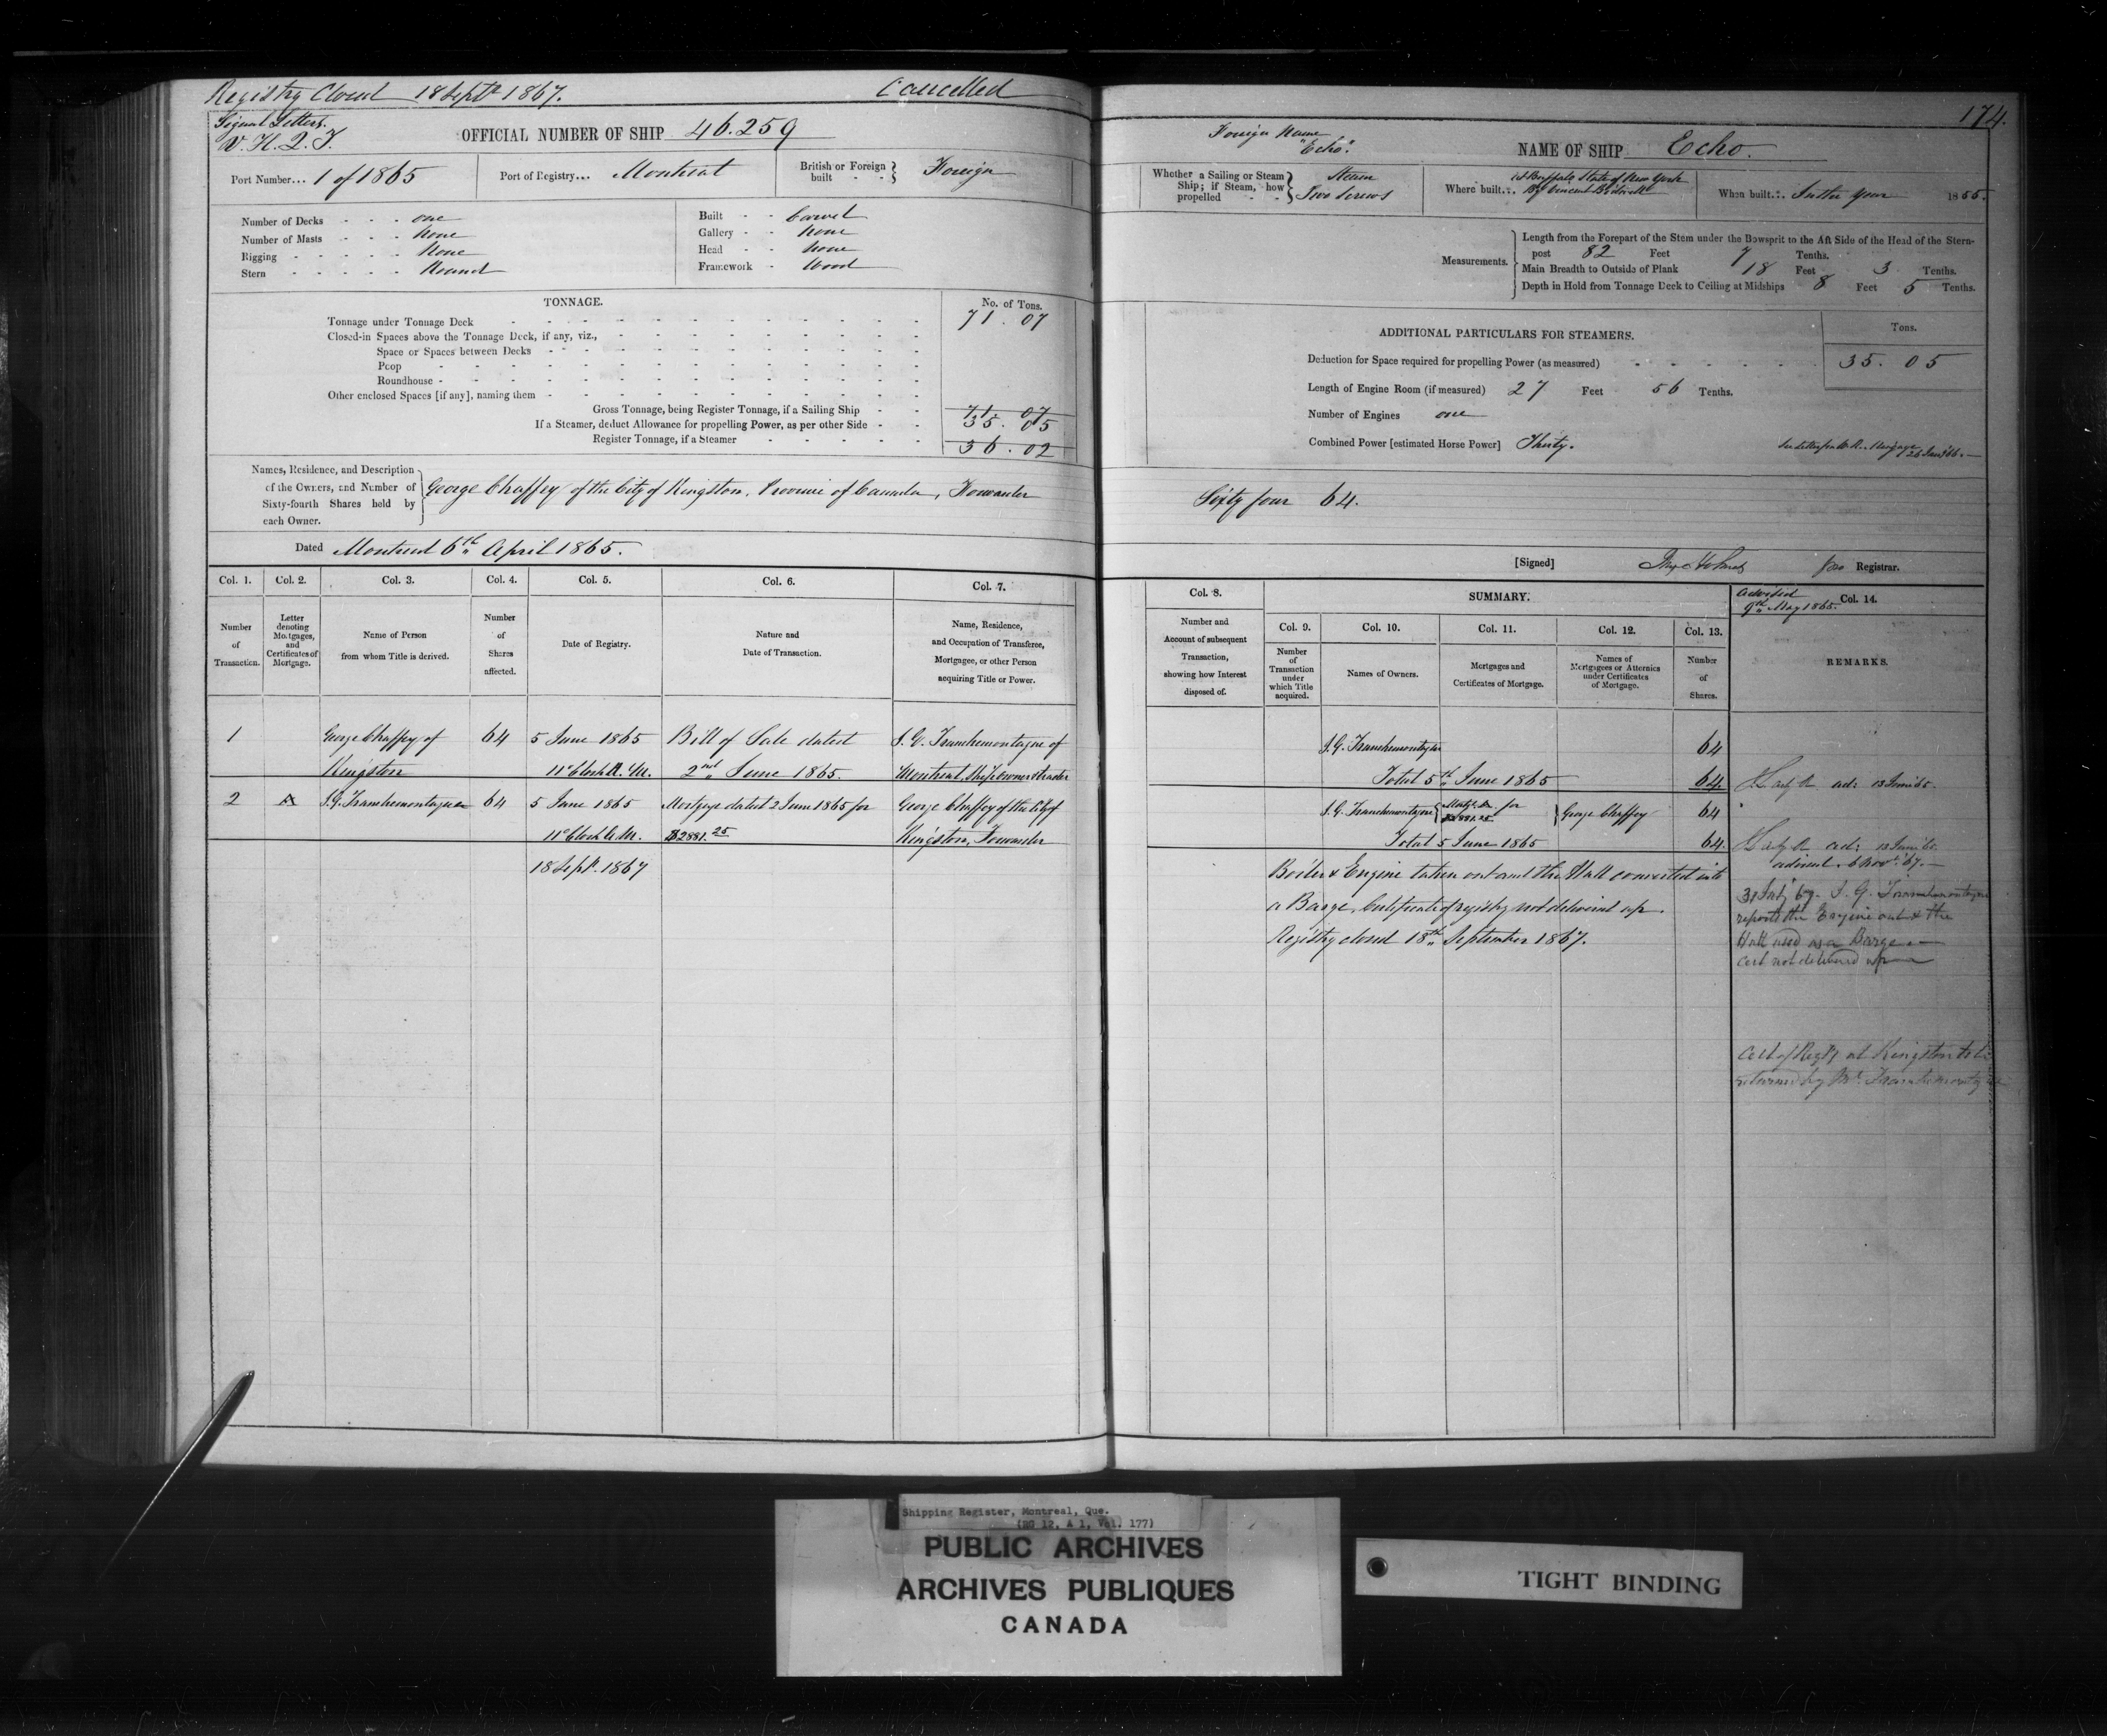 Registry Closed 18 Septr 1867.
Cancelled
Signal Letters.
V. H. Q. J.
OFFICIAL NUMBER OF SHIP 46.259
Port Number... 1 of 1865
Port of Registry... Montreal
British or Foreign built - - } Foreign
Number of Decks - - - one
Number of Masts - - - None
Rigging - - - - - None
Stern - - - - - Round
Built - - Carvel
Gallery - - None
Head - - None
Framework - Wood
TONNAGE.
No. of Tons.
Tonnage under Tonnage Deck 71.07
Closed-in Spaces above the Tonnage Deck, if any, viz.,
Space or Spaces between Decks
Poop
Roundhouse
Other enclosed Spaces [if any], naming them
Gross Tonnage, being Register Tonnage, if a Sailing Ship 71.07
If a Steamer, deduct Allowance for propelling Power, as per other Side 35.05
Register Tonnage, if a Steamer 36.02
Names, Residence, and Description
of the Owners, and Number of
Sixty-fourth Shares held by
each Owner.
George Chaffey of the City of Kingston, Province of Canada, Forwarder
Dated Montreal 6th April 1865.
Col. 1. Col. 2. Col. 3. Col. 4. Col. 5. Col. 6. Col. 7.
Number of Transaction.
Letter denoting Mortgages, and Certificates of Mortgage.
Name of Person from whom Title is derived.
Number of Shares affected.
Date of Registry.
Nature and Date of Transaction.
Name, Residence, and Occupation of Transferee, Mortgagee, or other Person acquiring Title or Power.
1 George Chaffey of 64 5 June 1865 Bill of Sale dated S. G. Tranchemontagne of
Kingston 11 o'Clock A.M. 2nd June 1865. Montreal, Ship owner & trader
2 A S. G. Tranchemontagne 64 5 June 1865 Mortgage dated 2 June 1865 for George Chaffey of the City of
11 o'Clock A.M. $2881.25 Kingston, Forwarder
18 Sept. 1867
174.
Foreign Name
"Echo".
NAME OF SHIP Echo.
Whether a Sailing or Steam Ship; if Steam, how propelled - - } Steam
Two Screws
Where built... at Buffalo State of New York
By Vincent
When built... In the year 1855.
Measurements.
Length from the Forepart of the Stem under the Bowsprit to the Aft Side of the Head of the Stern-
post 82 Feet 7 Tenths.
Main Breadth to Outside of Plank 18 Feet 3 Tenths.
Depth in Hold from Tonnage Deck to Ceiling at Midships 8 Feet 5 Tenths.
ADDITIONAL PARTICULARS FOR STEAMERS.
Tons.
Deduction for Space required for propelling Power (as measured) 35.05
Length of Engine Room (if measured) 27 Feet 56 Tenths.
Number of Engines one
Combined Power [estimated Horse Power] Thirty.
Sixty four 64.
[Signed] pro Registrar.
Col. 8.
Number and Account of subsequent Transaction, showing how Interest disposed of.
SUMMARY.
Col. 9. Col. 10. Col. 11. Col. 12. Col. 13.
Number of Transaction under which Title acquired.
Names of Owners.
Mortgages and Certificates of Mortgage.
Names of Mortgagees or Attornies under Certificates of Mortgage.
Number of Shares.
advised
9th May 1865.
Col. 14.
REMARKS.
S. G. Tranchemontagne 64
Total 5th June 1865 64
S. G. Tranchemontagne { Mortge. A. for $2881.25 } George Chaffey 64
Total 5 June 1865 64.
adv: 13 June 65.
adv: 13 June 65.
advised. 6 Novr. 67.
Boiler & Engine taken out and the Hull converted into
a Barge, Certificate of registry not delivered up.
Registry closed 18th September 1867.
S. G. Tranchemontagne
reports the Engine out & the
Hull used as a Barge.
Cert not delivered up
Cert of Regty at Kingston to be
returned by Mr. Tranchemontagne
Shipping Register, Montreal, Que.
(RG 12, A 1, Vol. 177)
PUBLIC ARCHIVES
ARCHIVES PUBLIQUES
CANADA
TIGHT BINDING